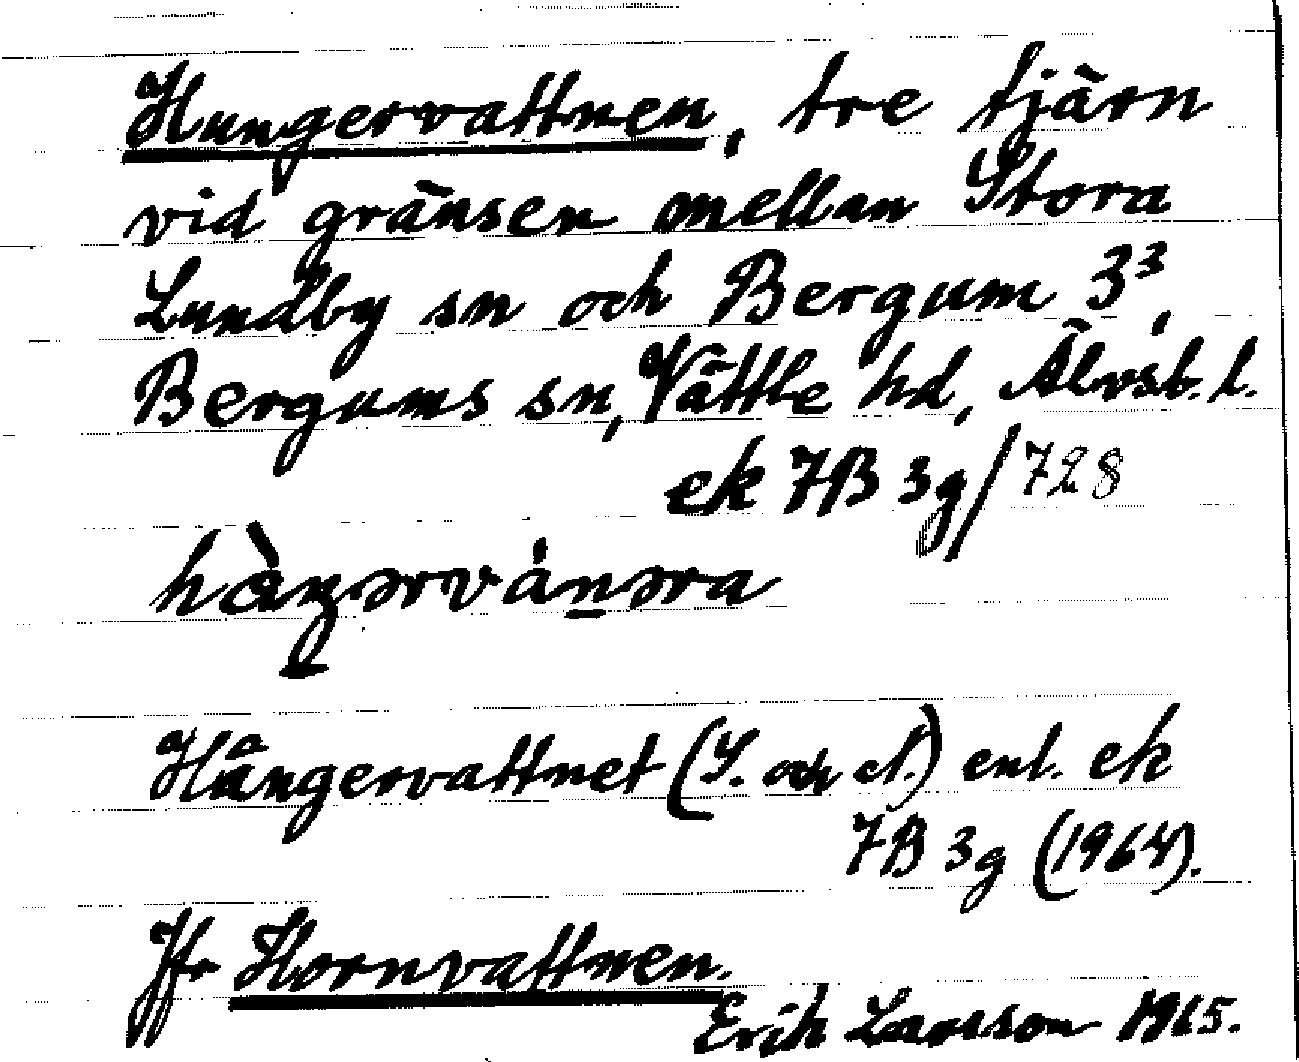 Hungervattnen, tre tjärn
vid gränsen mellan Stora
Lundby sn och Bergum 3³,
Bergums sn, Vättle hd, Älvsb. l.
ek 7B 3g/728
hàŋərvánəra
Hångervattnet (Y. och ) enl. ek
7B 3g (1964).
Jfr Hornvattnen.
Erik Larsson 1965.